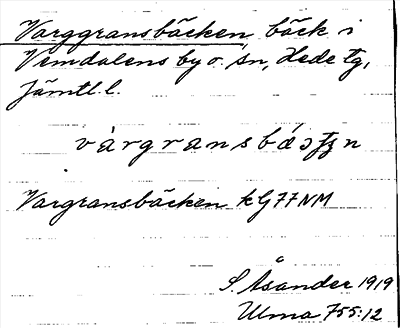 Varggransbäcken, bäck i
Vemdalens by o. sn, Hede tg,
Jämtl. l.
Vargransbäcken kG77NM
S. Åsander 1919
Ulma 755:12